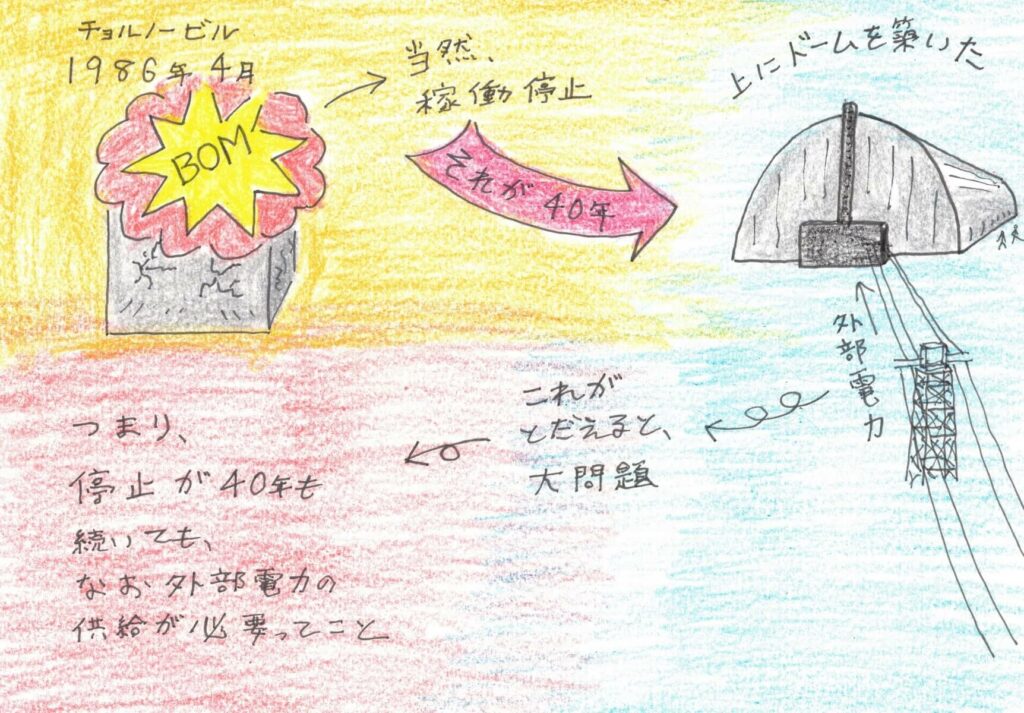 チョルノービル
1986年4月
BOM
当然、
稼働停止
それが40年
上にドームを築いた
外部電力
これが
とだえると、
大問題
つまり、
停止が40年も
続いても、
なお外部電力の
供給が必要ってこと